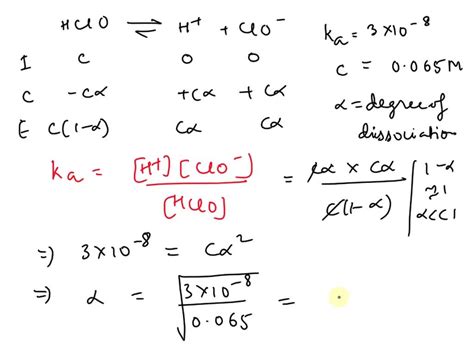 HClO ⇌ H⁺ + ClO⁻
I C O O
C -Cα +Cα + Cα
E C(1-α) Cα Cα
ka = 3×10⁻⁸
C = 0.065M
α = degree of
dissociation
ka = [H⁺][ClO⁻] / [HClO] = Cα × Cα / C(1-α)
1-α
≈1
α<<1
⇒ 3×10⁻⁸ = Cα²
⇒ α = √(3×10⁻⁸ / 0.065) =